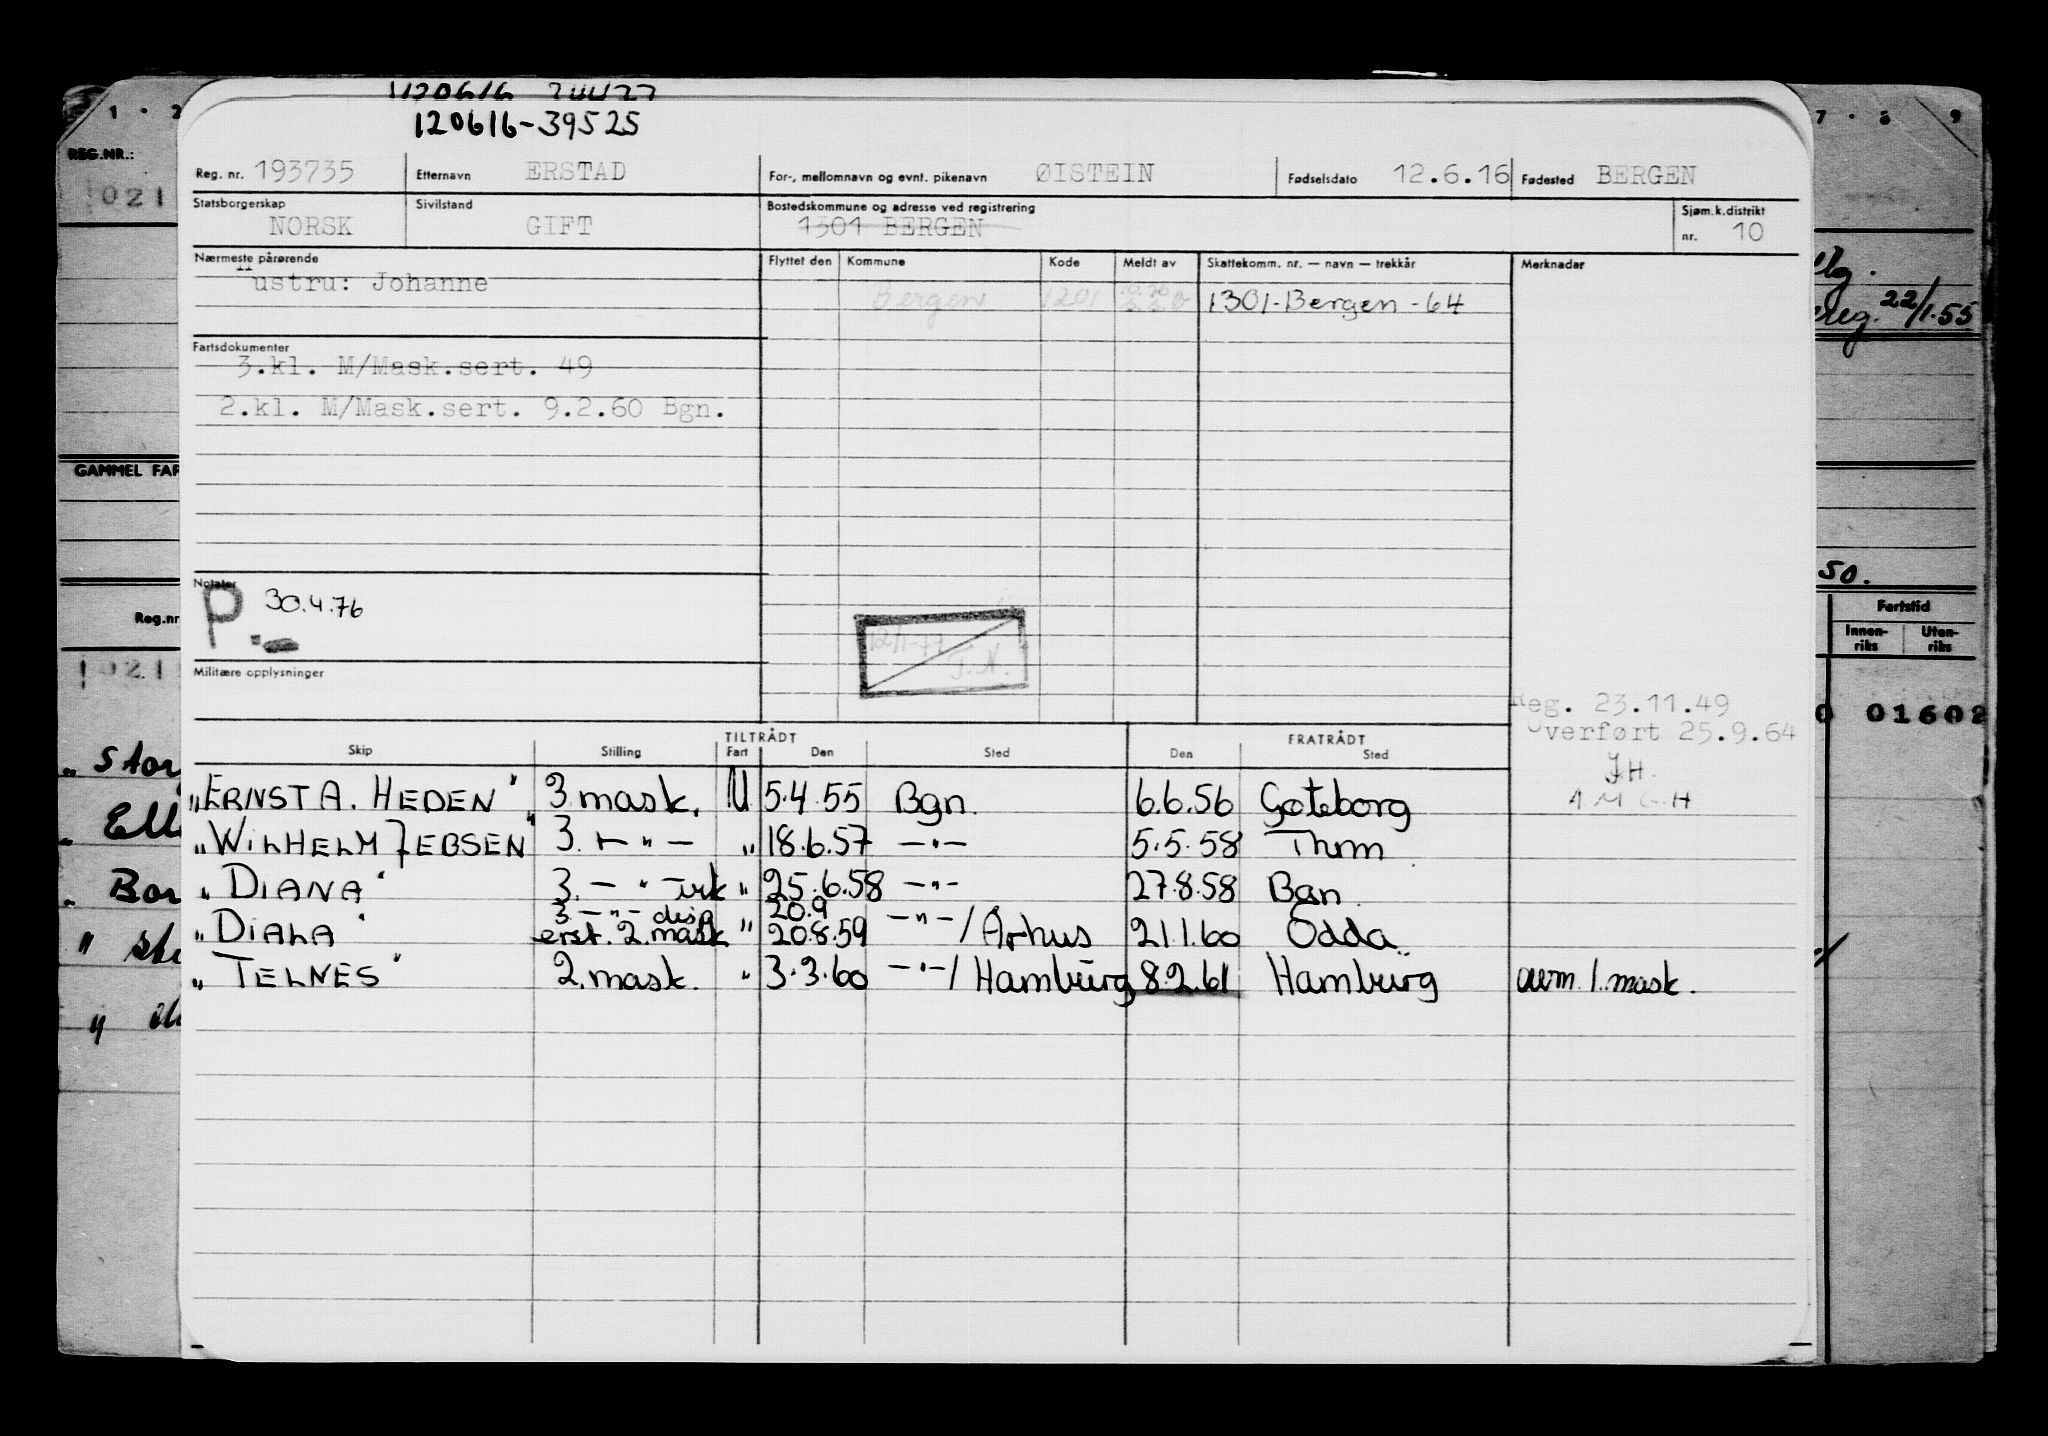 120616-39525
Reg. nr. 193735 Etternavn ERSTAD For-, mellomnavn og evnt. pikenavn ØISTEIN Fødselsdato 12.6.16 Fødested BERGEN
Statsborgerskap NORSK Sivilstand GIFT Bostedskommune og adresse ved registrering 1301 BERGEN Sjøm.k.distrikt nr. 10
Nærmeste pårørende Flyttet den Kommune Kode Meldt av Skattekomm. nr. — navn — trekkår Merknader
Hustru: Johanne Bergen 1201 1301-Bergen-64
Fartsdokumenter
3.kl. M/Mask.sert. 49
2.kl. M/Mask.sert. 9.2.60 Bgn.
Notater
P 30.4.76
12/1-77
T.N.
Militære opplysninger
Reg. 23.11.49
Overført 25.9.64
J.H.
A M G H
TILTRÅDT FRATRÅDT
Skip Stilling Fart Den Sted Den Sted
"ERNST A. HEDEN" 3 mask. U 5.4.55 Bgn. 6.6.56 Gøteborg
"WILHELM JEBSEN" 3. — " — " 18.6.57 — " — 5.5.58 Thm
"DIANA" 3. — " — irk " 25.6.58 — " — 27.8.58 Bgn.
3. — " — disp 20.9
"DIALA" erst. 2. mask " 20.8.59 — " — / Århus 21.1.60 Odda
"TELNES" 2. mask. " 3.3.60 — " — / Hamburg 8.2.61 Hamburg avm. 1. mask.
1 · 2
REG.NR.:
021
GAMMEL FAR
Reg.nr
021
7 · 8 9
22/1.55
50.
Fartstid
Innen-riks Uten-riks
0 01602